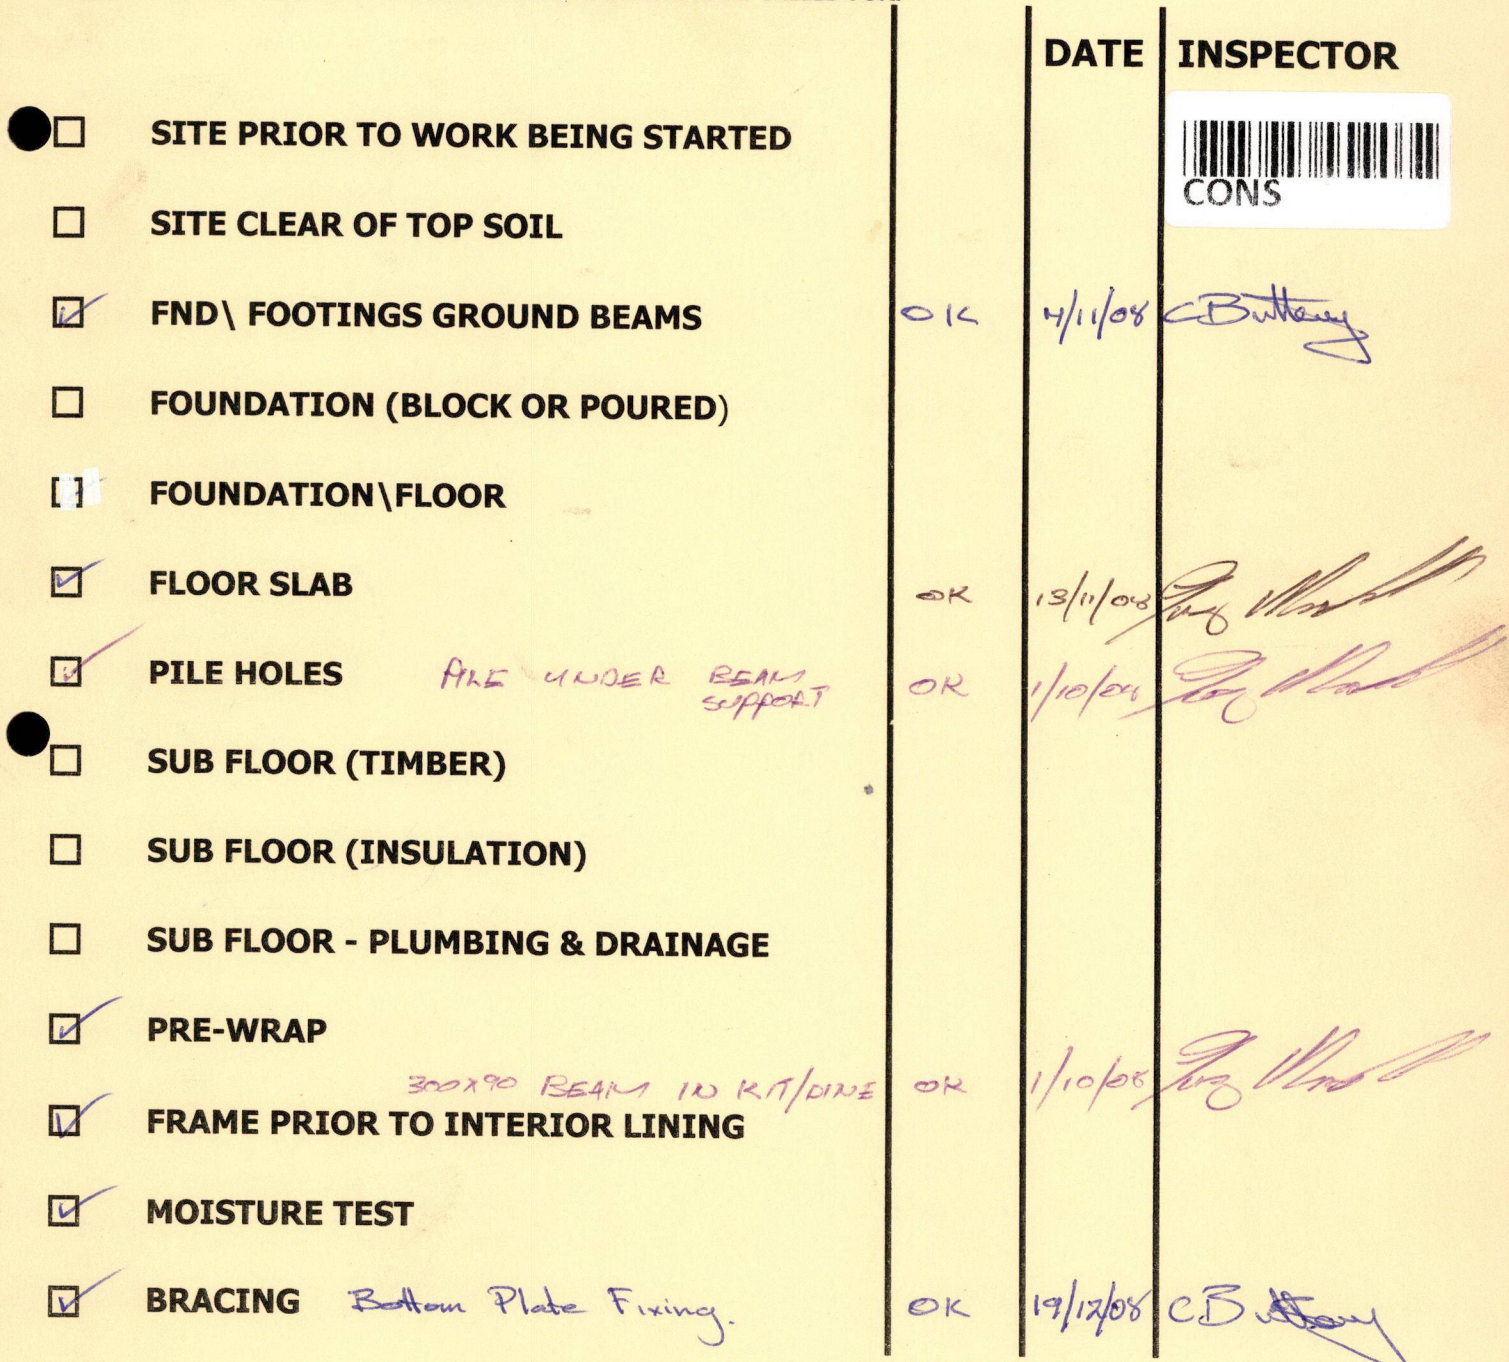 DATE INSPECTOR
SITE PRIOR TO WORK BEING STARTED
CONS
SITE CLEAR OF TOP SOIL
FND\ FOOTINGS GROUND BEAMS OK 4/11/08 CButtery
FOUNDATION (BLOCK OR POURED)
FOUNDATION\FLOOR
FLOOR SLAB OK 13/11/08
PILE HOLES PILE UNDER BEAM OK 1/10/08
SUPPORT
SUB FLOOR (TIMBER)
SUB FLOOR (INSULATION)
SUB FLOOR - PLUMBING & DRAINAGE
PRE-WRAP
300x90 BEAM IN KIT/DINE OK 1/10/08
FRAME PRIOR TO INTERIOR LINING
MOISTURE TEST
BRACING Bottom Plate Fixing. OK 19/12/08 CButtery